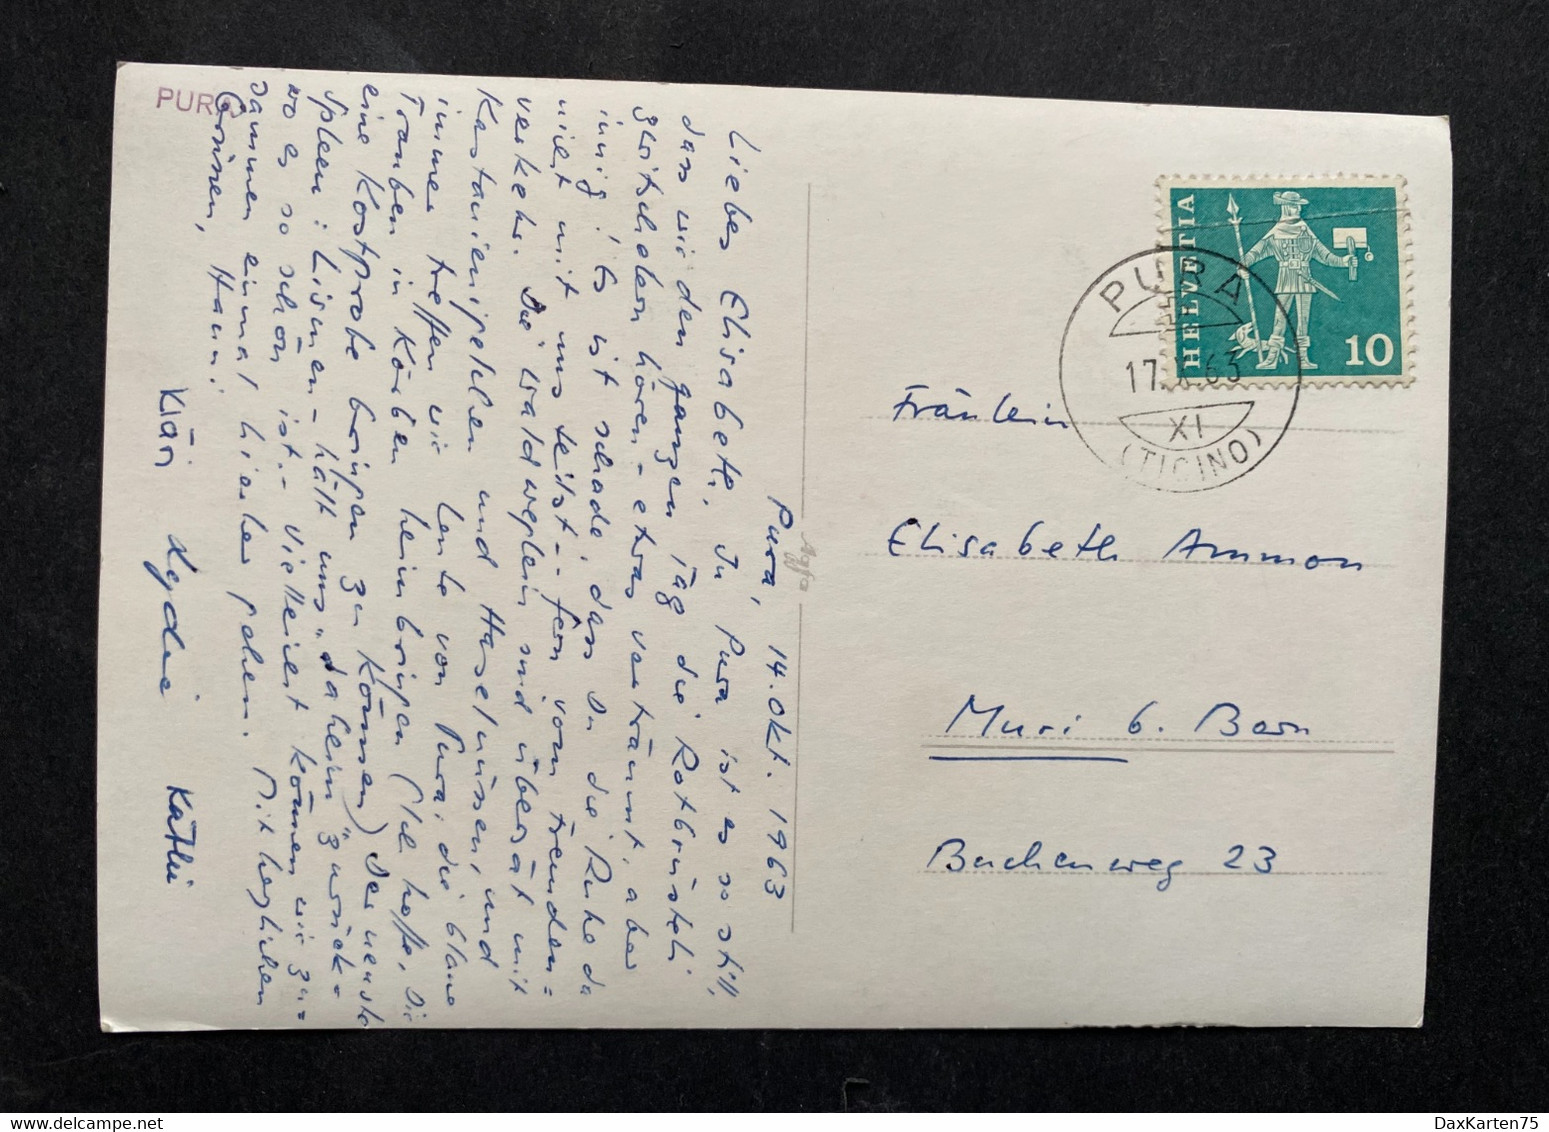 PURA
Pura, 14. Okt. 1963
Liebes Elisabeth, In Pura ist es so still,
dass wir den ganzen Tag die Rotbrüsteli
hören – etwas verträumt, aber
innig. Es ist schade, dass Du die Ruhe da
nicht mit uns teilst – fern vom Fremden=
verkehr. Die Waldweglein sind übersät mit
Kastanienigelchen und Haselnüssen, und
immer treffen wir Leute von Pura, die blaue
Trauben in Körben heimbringen (Ich hoffe, Dir
eine Kostprobe bringen zu können) Der neuste
Spleen: Lismen – hält uns „daheim" zurück –
wo es so schön ist. – Vielleicht können wir zu=
sammen einmal hierher gehen. Mit herzlichen
Grüssen, Hanni
Kläri Lydia Käthi
Agfa
HELVETIA
10
PURA
17.X.63
XI
(TICINO)
Fräulein
Elisabeth Ammon
Muri b. Bern
Buchenweg 23
DaxKarten75